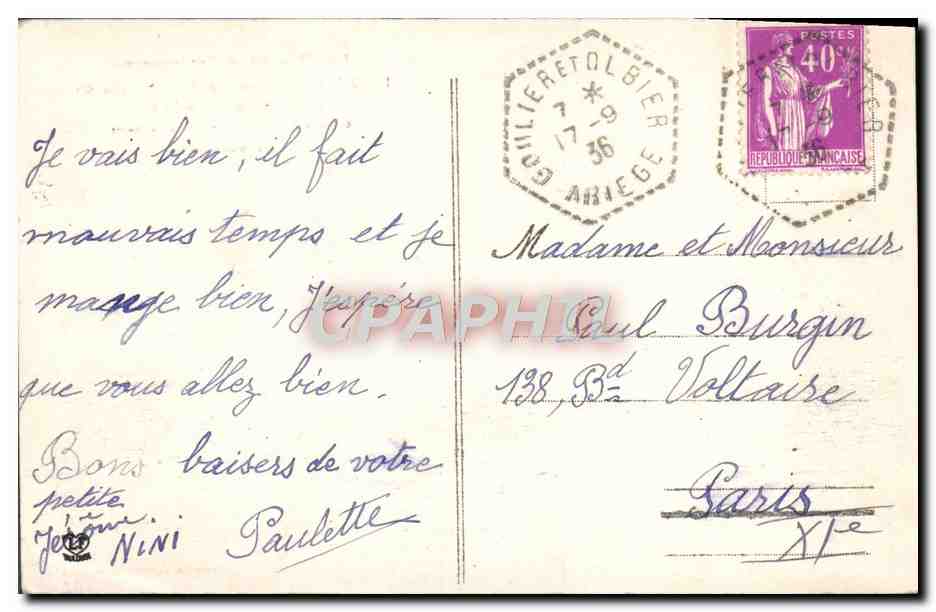 Je vais bien, il fait
mauvais temps et je
mange bien, J'espére
que vous allez bien.
Bons baisers de votre
petite
Paulette
Jerôme.
NINI
GOULIER ET OLBIER
7 * -9
17 36
ARIEGE
POSTES
40c
REPUBLIQUE FRANÇAISE
Madame et Monsieur
Paul Burgin
138, Bd Voltaire
Paris
XIe
CPAPHIL